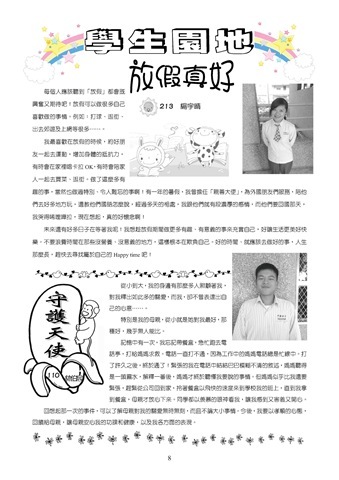 學生園地
放假真好
213 楊宇晴
每個人應該聽到「放假」都會既
興奮又期待吧！放假可以做很多自己
喜歡做的事情，例如：打球、逛街、
出去郊遊及上網等很多……。
我最喜歡在放假的時候，約好朋
友一起去運動，增加身體的抵抗力，
有時會在家裡唱卡拉 OK，有時會陪家
人一起去買菜、逛街，做了這麼多有
趣的事。當然也做過特別、令人難忘的事啊！有一年的暑假，我曾擔任「親善大使」，為外國朋友們服務，陪他
們去好多地方玩，還教他們國語怎麼說，經過多天的相處，我跟他們就有股濃厚的感情，而他們要回國那天，
我哭得唏哩嘩啦，現在想起，真的好懷念啊！
未來還有好多日子在等著我呢！我想趁放假期間做更多有趣、有意義的事來充實自己，好讓生活更美好快
樂，不要浪費時間在那些沒營養、沒意義的地方，這樣根本在欺負自己，好的時間，就應該去做好的事，人生
那麼長，趕快去尋找屬於自己的 Happy time 吧！
守護天使
110
從小到大，我的身邊有那麼多人照顧著我，
對我釋出如此多的關愛，而我，卻不曾表達出自
己的心意……。
特別是我的母親，從小就是她對我最好，那
種好，幾乎無人能比。
記憶中有一次，我忘記帶餐盒，急忙跑去電
話亭，打給媽媽求救，電話一直打不通，因為工作中的媽媽電話總是忙線中，打
了許久之後，終於通了，緊張的我在電話中結結巴巴模糊不清的敘述，媽媽聽得
是一頭霧水，解釋一番後，媽媽才終於聽懂我要說的事情，但媽媽似乎比我還要
緊張，趕緊從公司回到家，拎著餐盒以飛快的速度來到學校的街上，直到我拿
到餐盒，母親才放心下來，同學都以羨慕的眼神看我，讓我感到又害羞又開心。
回想起那一次的事件，可以了解母親對我的關愛無時無刻，而且不論大小事情。今後，我要以孝順的心態，
回饋給母親，讓母親安心我的功課和健康，以及我各方面的表現。
8